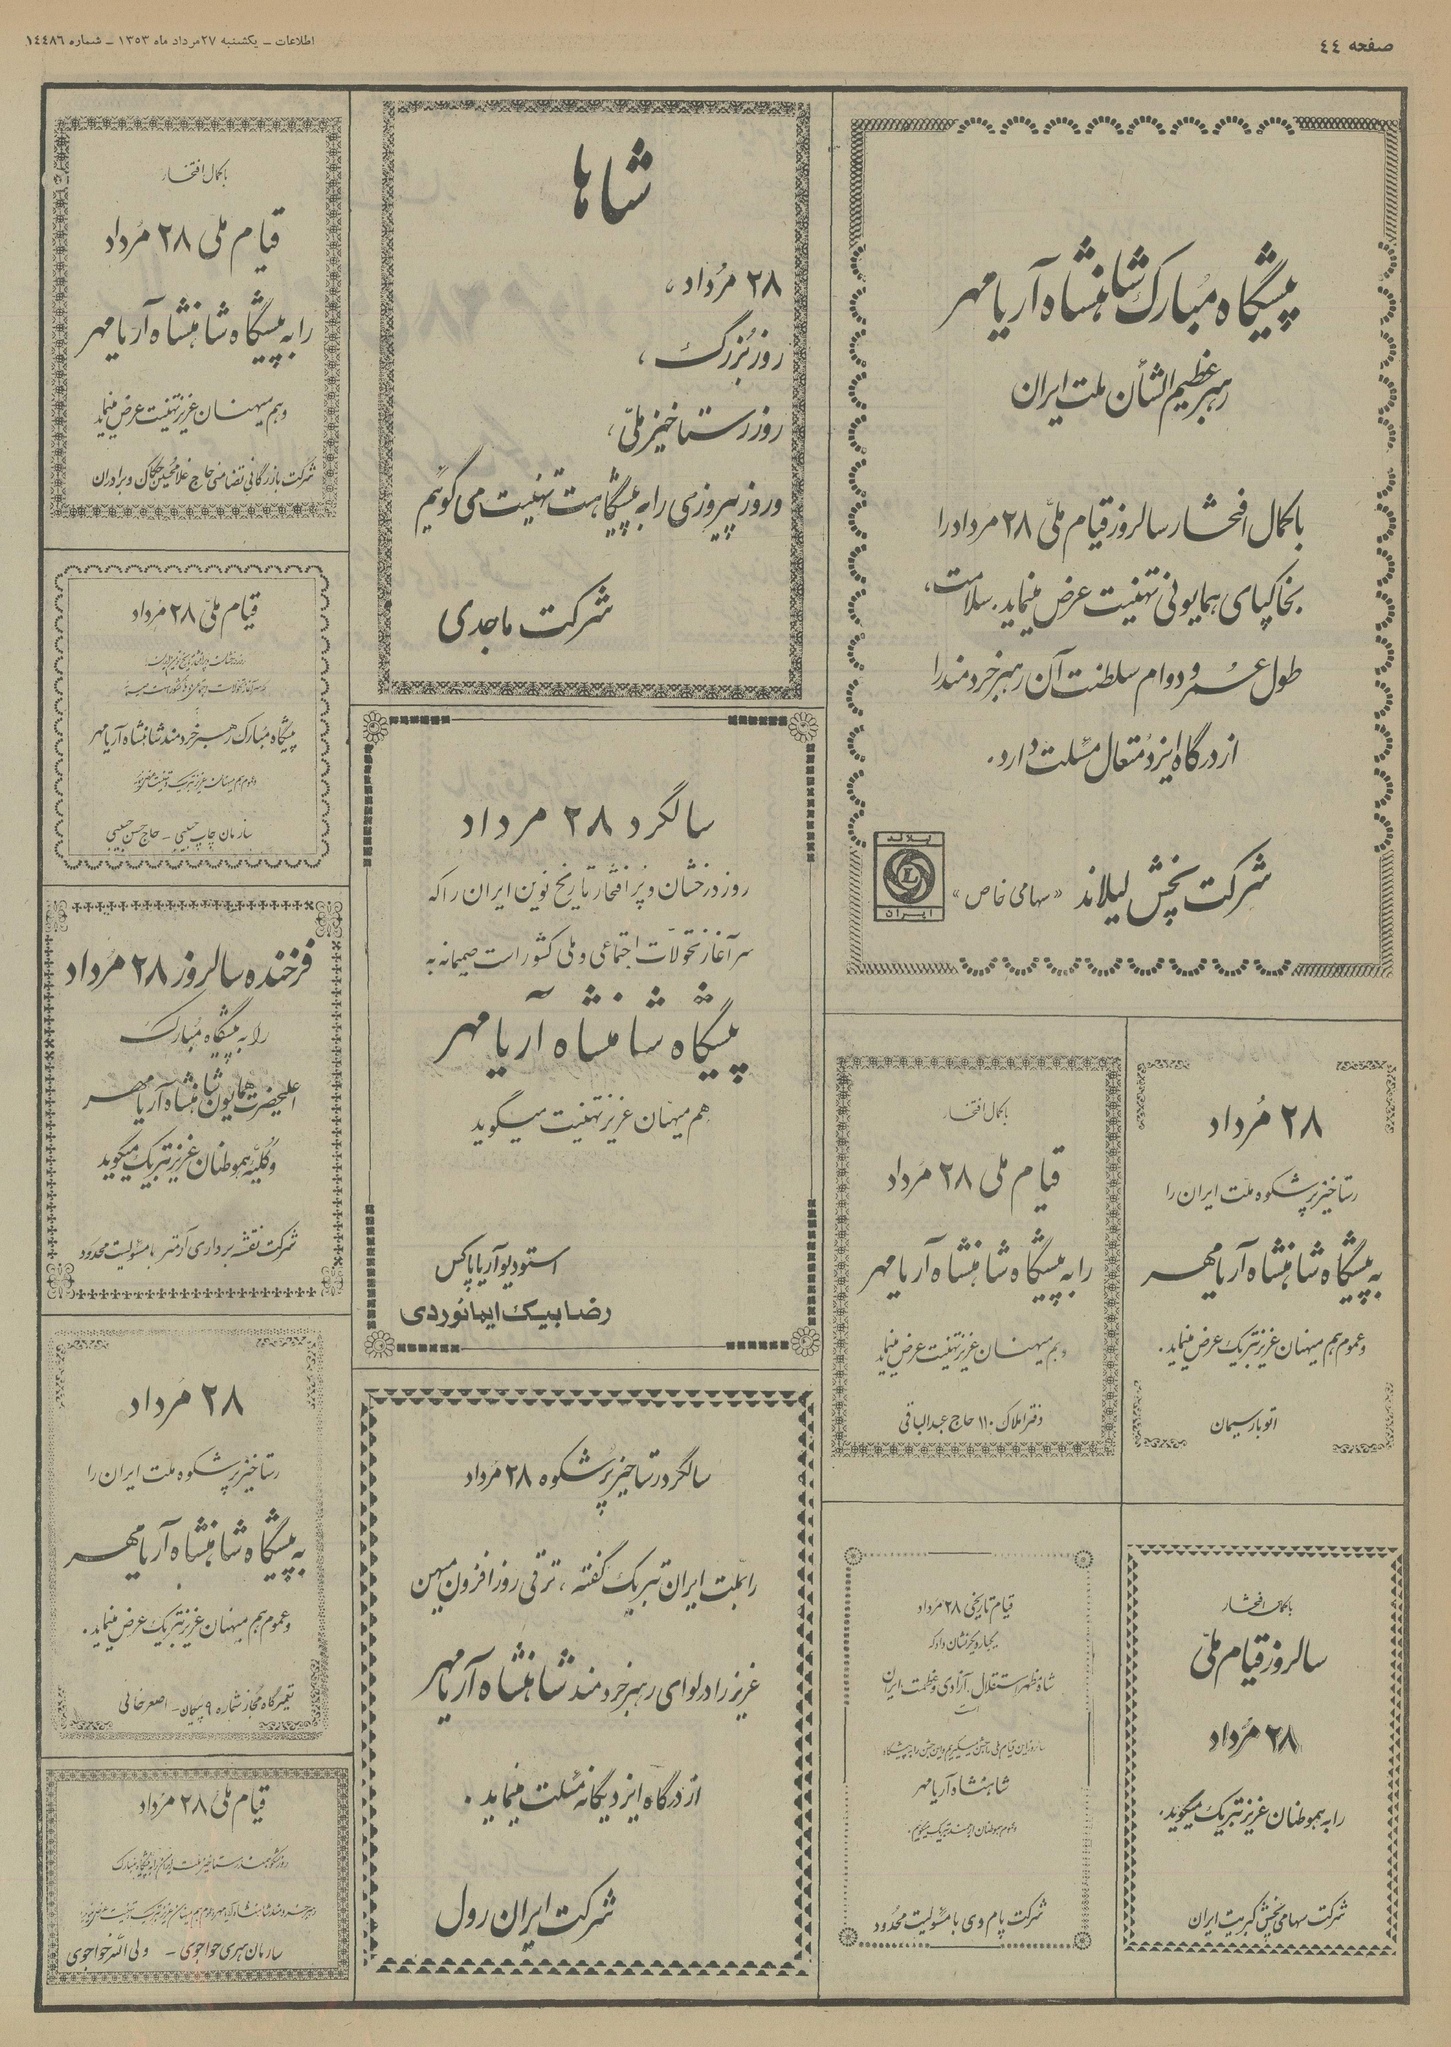 صفحه ٤٤
اطلاعات ـ یکشنبه ٢٧ مرداد ماه ١٣٥٣ ـ شماره ١٤٤٨٦
پیشگاه مبارک شاهنشاه آریامهر
رهبر عظیم الشأن ملت ایران
با کمال افتخار سالروز قیام ملی ٢٨ مرداد را
بخاکپای همایونی تهنیت عرض مینماید. سلامت،
طول عمر و دوام سلطنت آن رهبر خردمند را
از درگاه ایزد متعال مسئلت دارد.
شرکت پخش لیلاند «سهامی خاص»
لیلاند
L
ایران
شاها
٢٨ مرداد،
روز بزرگ،
روز رستاخیز ملی،
و روز پیروزی را به پیشگاهت تهنیت می گوئیم
شرکت ماجدی
با کمال افتخار
قیام ملی ٢٨ مرداد
را به پیشگاه شاهنشاه آریامهر
و هم میهنان عزیز تهنیت عرض مینماید
شرکت بازرگانی تضامنی حاج غلامحسین حکاک و برادران
قیام ملی ٢٨ مرداد
پیشگاه مبارک رهبر خردمند شاهنشاه آریامهر
و عموم هم میهنان عزیز تبریک و تهنیت
سازمان چاپ حبیبی ـ حاج حسن حبیبی
سالگرد ٢٨ مرداد
روز درخشان و پر افتخار تاریخ نوین ایران را که
سرآغاز تحولات اجتماعی و ملی کشور است صمیمانه به
پیشگاه شاهنشاه آریامهر
هم میهنان عزیز تهنیت میگوید
استودیو آریا پاکس
رضا بیک ایمانوردی
فرخنده سالروز ٢٨ مرداد
را به پیشگاه مبارک
اعلیحضرت همایون شاهنشاه آریامهر
و کلیه هموطنان عزیز تبریک میگوید
شرکت نقشه برداری آدمتر با مسئولیت محدود
٢٨ مرداد
رستاخیز پرشکوه ملت ایران را
به پیشگاه شاهنشاه آریامهر
و عموم هم میهنان عزیز تبریک عرض مینماید.
اتو بار سیمان
با کمال افتخار
قیام ملی ٢٨ مرداد
را به پیشگاه شاهنشاه آریامهر
و هم میهنان عزیز تهنیت عرض مینماید
دفتر املاک ١١٠ حاج عبدالباقی
٢٨ مرداد
رستاخیز پرشکوه ملت ایران را
به پیشگاه شاهنشاه آریامهر
و عموم هم میهنان عزیز تبریک عرض مینماید.
تعمیرگاه مجاز شماره ٩ پیکان ـ اصغر خانی
سالگرد رستاخیز پرشکوه ٢٨ مرداد
را بملت ایران تبریک گفته، ترقی روز افزون میهن
عزیز را در لوای رهبر خردمند شاهنشاه آریامهر
از درگاه ایزد یگانه مسئلت مینماید.
شرکت ایران رول
با کمال افتخار
سالروز قیام ملی
٢٨ مرداد
را به هموطنان عزیز تبریک میگوید.
شرکت سهامی پخش کبریت ایران
قیام تاریخی ٢٨ مرداد
یکبار دیگر نشان داد که
شاه مظهر استقلال، آزادی و عظمت ایران
است
سالروز این قیام ملی را جشن میگیریم و این جشن را به پیشگاه
شاهنشاه آریامهر
و عموم هموطنان ارجمند تبریک میگوئیم.
شرکت پام وی با مسئولیت محدود
قیام ملی ٢٨ مرداد
سازمان هنری خواجوی ـ ولی الله خواجوی